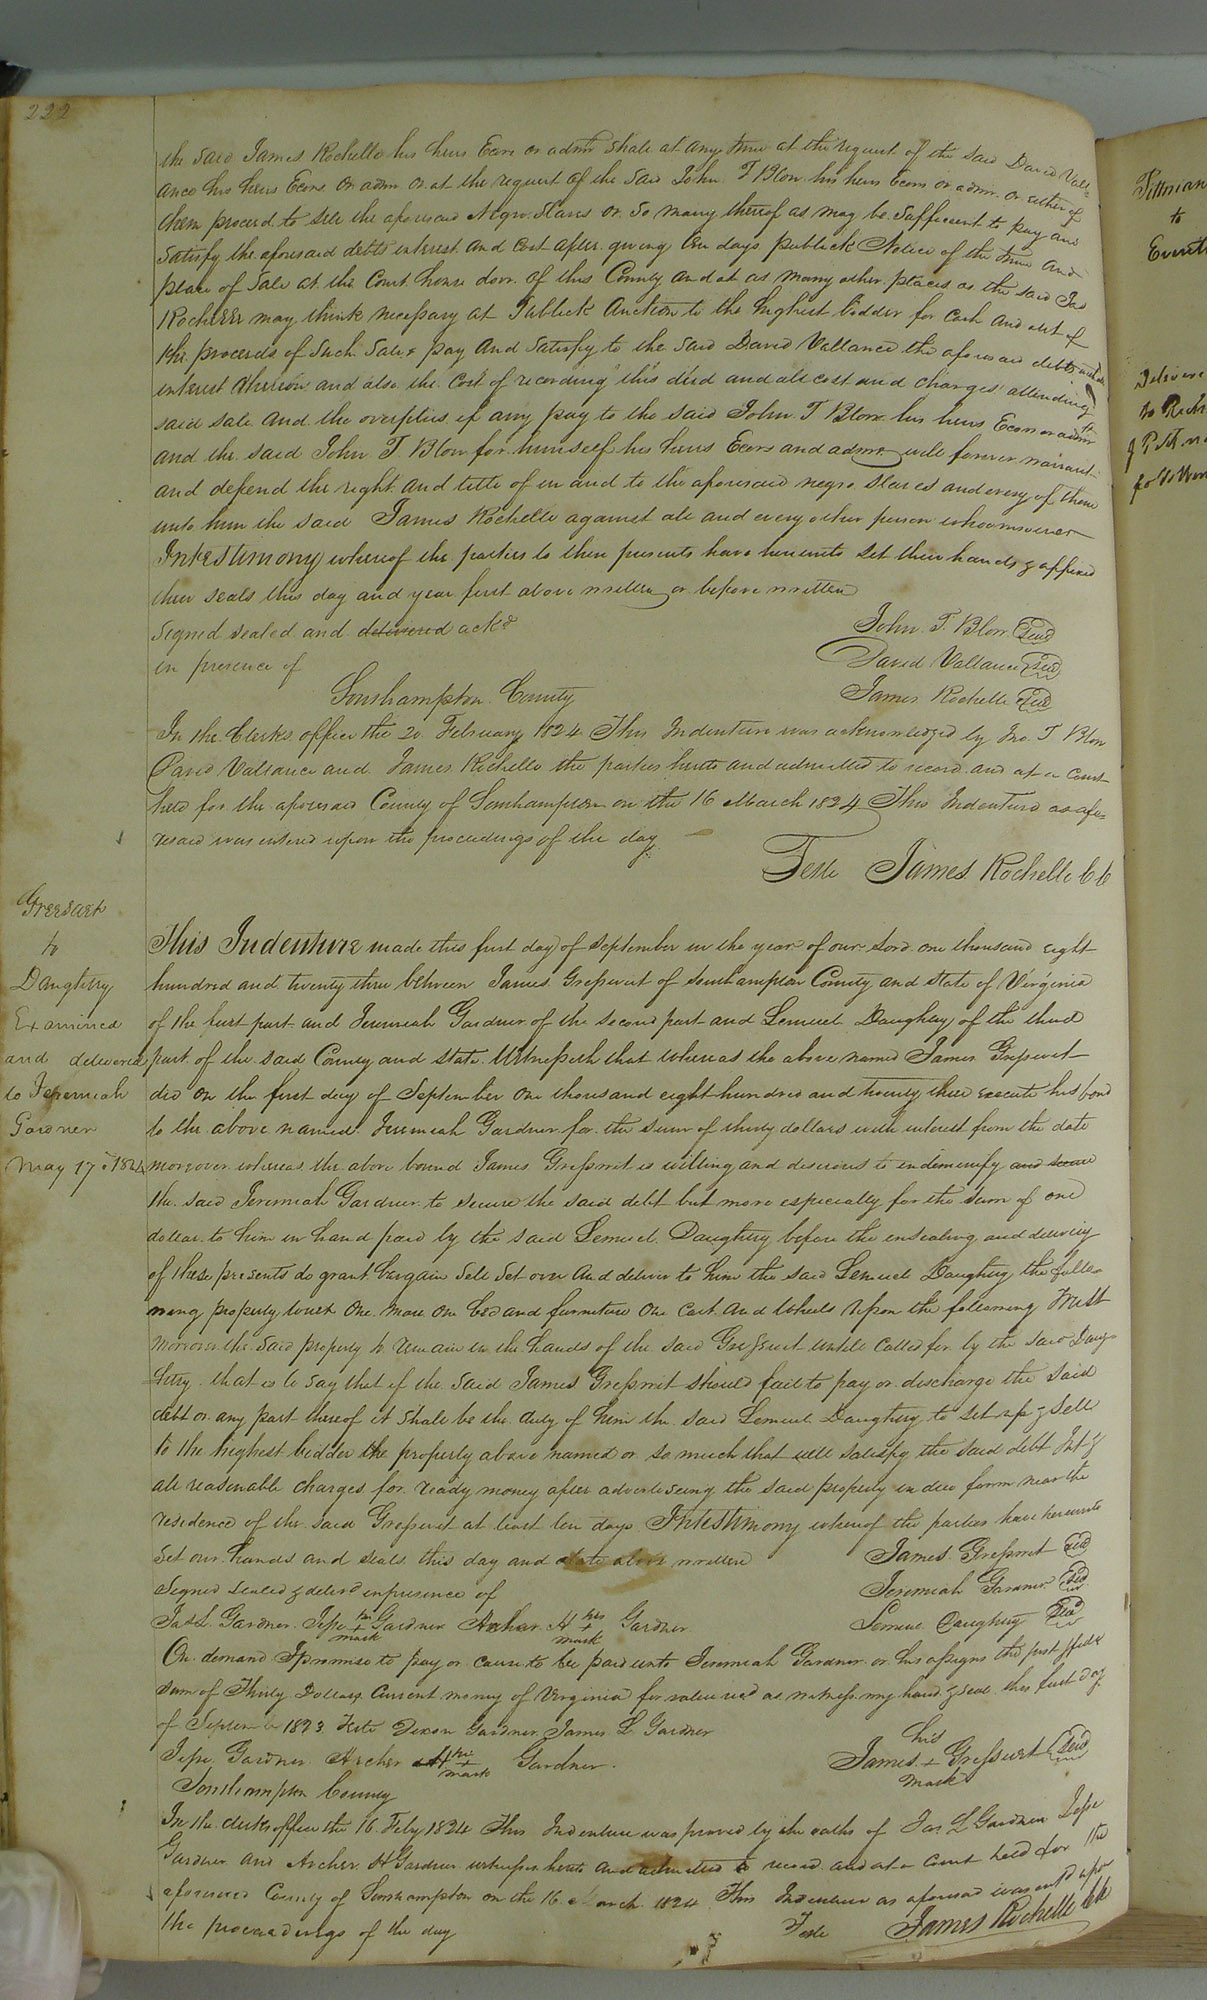 222
the said James Rochelle his heirs Exors or admrs shall at any time at the request of the said David Vall-
ance his heirs Exors or admrs or at the request of the said John T Blow his heirs Exors or admrs or either of
them proceed to sell the aforesaid Negro Slaves or so many thereof as may be sufficient to pay and
satisfy the aforesaid debts interest and cost after giving ten days publick Notice of the time and
place of Sale at the Court house door of this County and at as many other places as the said Jas
Rochelle may think necessary at Publick Auction to the highest bidder for Cash and out of
the proceeds of such Sale pay and satisfy to the said David Vallance the aforesaid debts and
interest thereon and also the Cost of recording this deed and all cost and charges attending
said sale and the overplus if any pay to the said John T Blow his heirs Exors or admrs
and the said John T. Blow for himself his heirs Exors and admrs will forever warrant
and defend the right and title of in and to the aforesaid negro slaves and every of them
unto him the said James Rochelle against all and every other person whoomsoever
In testimony whereof the parties to these presents have hereunto set their hands & affixed
their seals this day and year first above written or before written
Signed sealed and delivered ackd
John T. Blow Seal
in presence of
David Vallance Seal
James Rochelle Seal
Southampton County
In the Clerks office the 20 February 1824 This Indenture was acknowledged by Jno. T Blow
David Vallance and James Rochelle the parties hereto and admitted to record and at a Court
held for the aforesaid County of Southampton on the 16 March 1824 This Indenture as afo-
resaid was entered upon the proceedings of the day
Teste James Rochelle Clk
Gresswit
to
Daughtry
Examined
and delivered
to Jeremiah
Gardner
May 17th 1824
This Indenture made this first day of September in the year of our Lord one thousand eight
hundred and twenty three between James Gresswit of Southampton County and State of Virginia
of the first part and Jeremiah Gardner of the second part and Lemuel Daughtry of the third
part of the said County and state. Witnesseth that whereas the above named James Gresswit
did on the first day of September One thousand eight hundred and twenty three execute his bond
to the above named Jeremiah Gardner for the sum of thirty dollars with interest from the date
moreover whereas the above bound James Gresswit is willing and desirous to indemnify and secure
the said Jeremiah Gardner to secure the said debt but more especially for the sum of one
dollar to him in hand paid by the said Lemuel Daughtry before the ensealing and delivery
of these presents do grant bargain sell set over and deliver to him the said Lemuel Daughtry the follo
wing property to wit One mare one bed and furniture one Cart and Wheels upon the following Trust
Moreover the said property to remain in the hands of the said Gresswit untill called for by the said Daug
htry that is to say that if the said James Gresswit should fail to pay or discharge the said
debt or any part thereof it shall be the duty of him the said Lemuel Daughtry to set up & sell
to the highest bidder the property above named or so much that will satisfy the said debt Int &
all reasonable charges for ready money after advertiseing the said property in due form near the
residence of the said Gresswit at least ten days In testimony whereof the parties have hereunto
set our hands and seals this day and date above written
James Gresswit Seal
Signed sealed & delivd in presence of
Jeremiah Gardner Seal
Jas L. Gardner. Jesse his + mark Gardner Archer H his + mark Gardner
Lemuel Daughtry Seal
On demand I promise to pay or cause to be paid unto Jeremiah Gardner or his assigns the just & full
sum of Thirty Dollars Current money of Virginia for value recd as witness my hand & seal this first day
of September 1823 Teste Dixon Gardner James L Gardner
Jesse Gardner Archer H his + mark Gardner.
his
James + Gresswit Seal
mark
Southampton County
In the clerks office the 16 Feby 1824 This Indenture was proved by the oaths of Jas L Gardner Jesse
Gardner and Archer H Gardner witnesses hereto and admitted to record and at a Court held for the
aforesaid County of Southampton on the 16 March 1824 This Indenture as aforesaid was entd upon
the proceedings of the day
Teste James Rochelle Clk
to